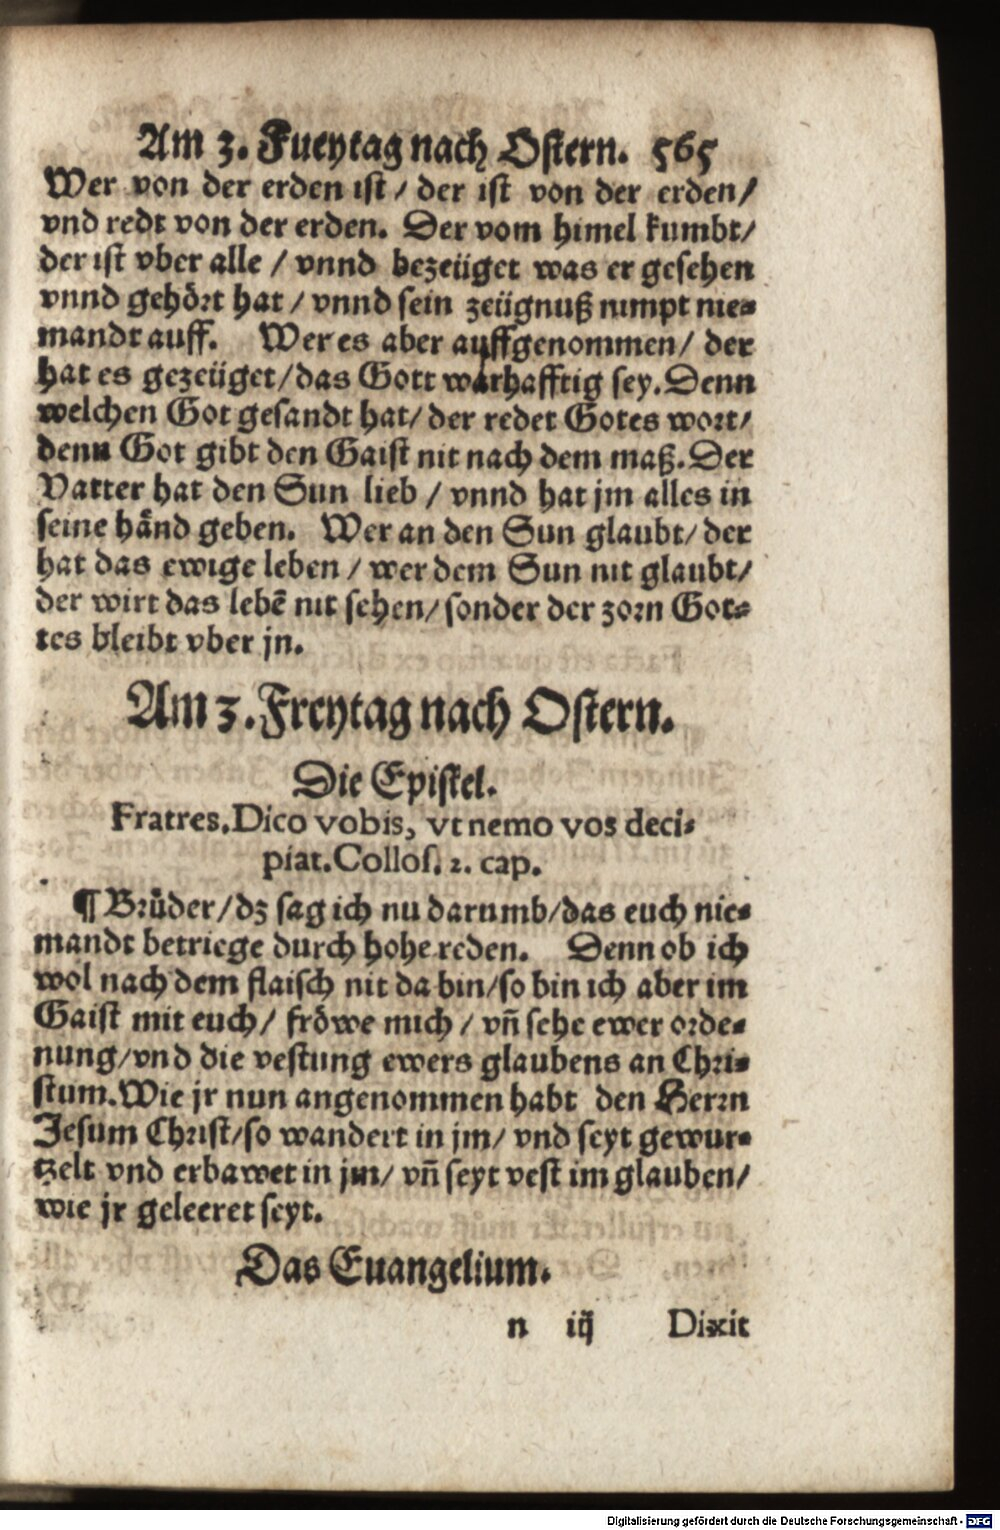 Am 3. Fueytag nach Ostern. 565
Wer von der erden ist / der ist von der erden/
vnd redt von der erden. Der vom himel kumbt/
der ist vber alle / vnnd bezeüget was er gesehen
vnnd gehört hat / vnnd sein zeügnuß nimpt nie-
mandt auff. Wer es aber auffgenommen/ der
hat es gezeüget/das Gott warhafftig sey. Denn
welchen Got gesandt hat/ der redet Gotes wort/
denn Got gibt den Gaist nit nach dem maß. Der
Vatter hat den Sun lieb / vnnd hat jm alles in
seine hånd geben. Wer an den Sun glaubt/ der
hat das ewige leben / wer dem Sun nit glaubt/
der wirt das lebẽ nit sehen/ sonder der zorn Got-
tes bleibt vber jn.
Am 3. Freytag nach Ostern.
Die Epistel.
Fratres. Dico vobis, vt nemo vos deci-
piat. Collos. 2. cap.
¶ Brüder/dz sag ich nu darumb/das euch nie-
mandt betriege durch hohe reden. Denn ob ich
wol nach dem flaisch nit da bin/so bin ich aber im
Gaist mit euch/ fröwe mich / vñ sehe ewer orde-
nung/vnd die vestung ewers glaubens an Chri-
stum. Wie jr nun angenommen habt den Herrn
Jesum Christ/so wandert in jm/ vnd seyt gewur-
tzelt vnd erbawet in jm/ vñ seyt vest im glauben/
wie jr geleeret seyt.
Das Euangelium.
n iij Dixit
Digitalisierung gefördert durch die Deutsche Forschungsgemeinschaft - DFG